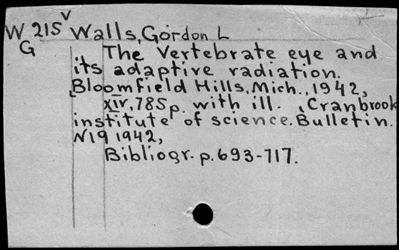 W 215 V Walls, Gordon L
G The Vertebrate eye and
its adaptive radiation.
Bloomfield Hills, Mich., 1942,
XIV, 785 p. with ill. , Cranbrook
institute of science. Bulletin.
N19 1942,
Bibliogr. p. 693-717.